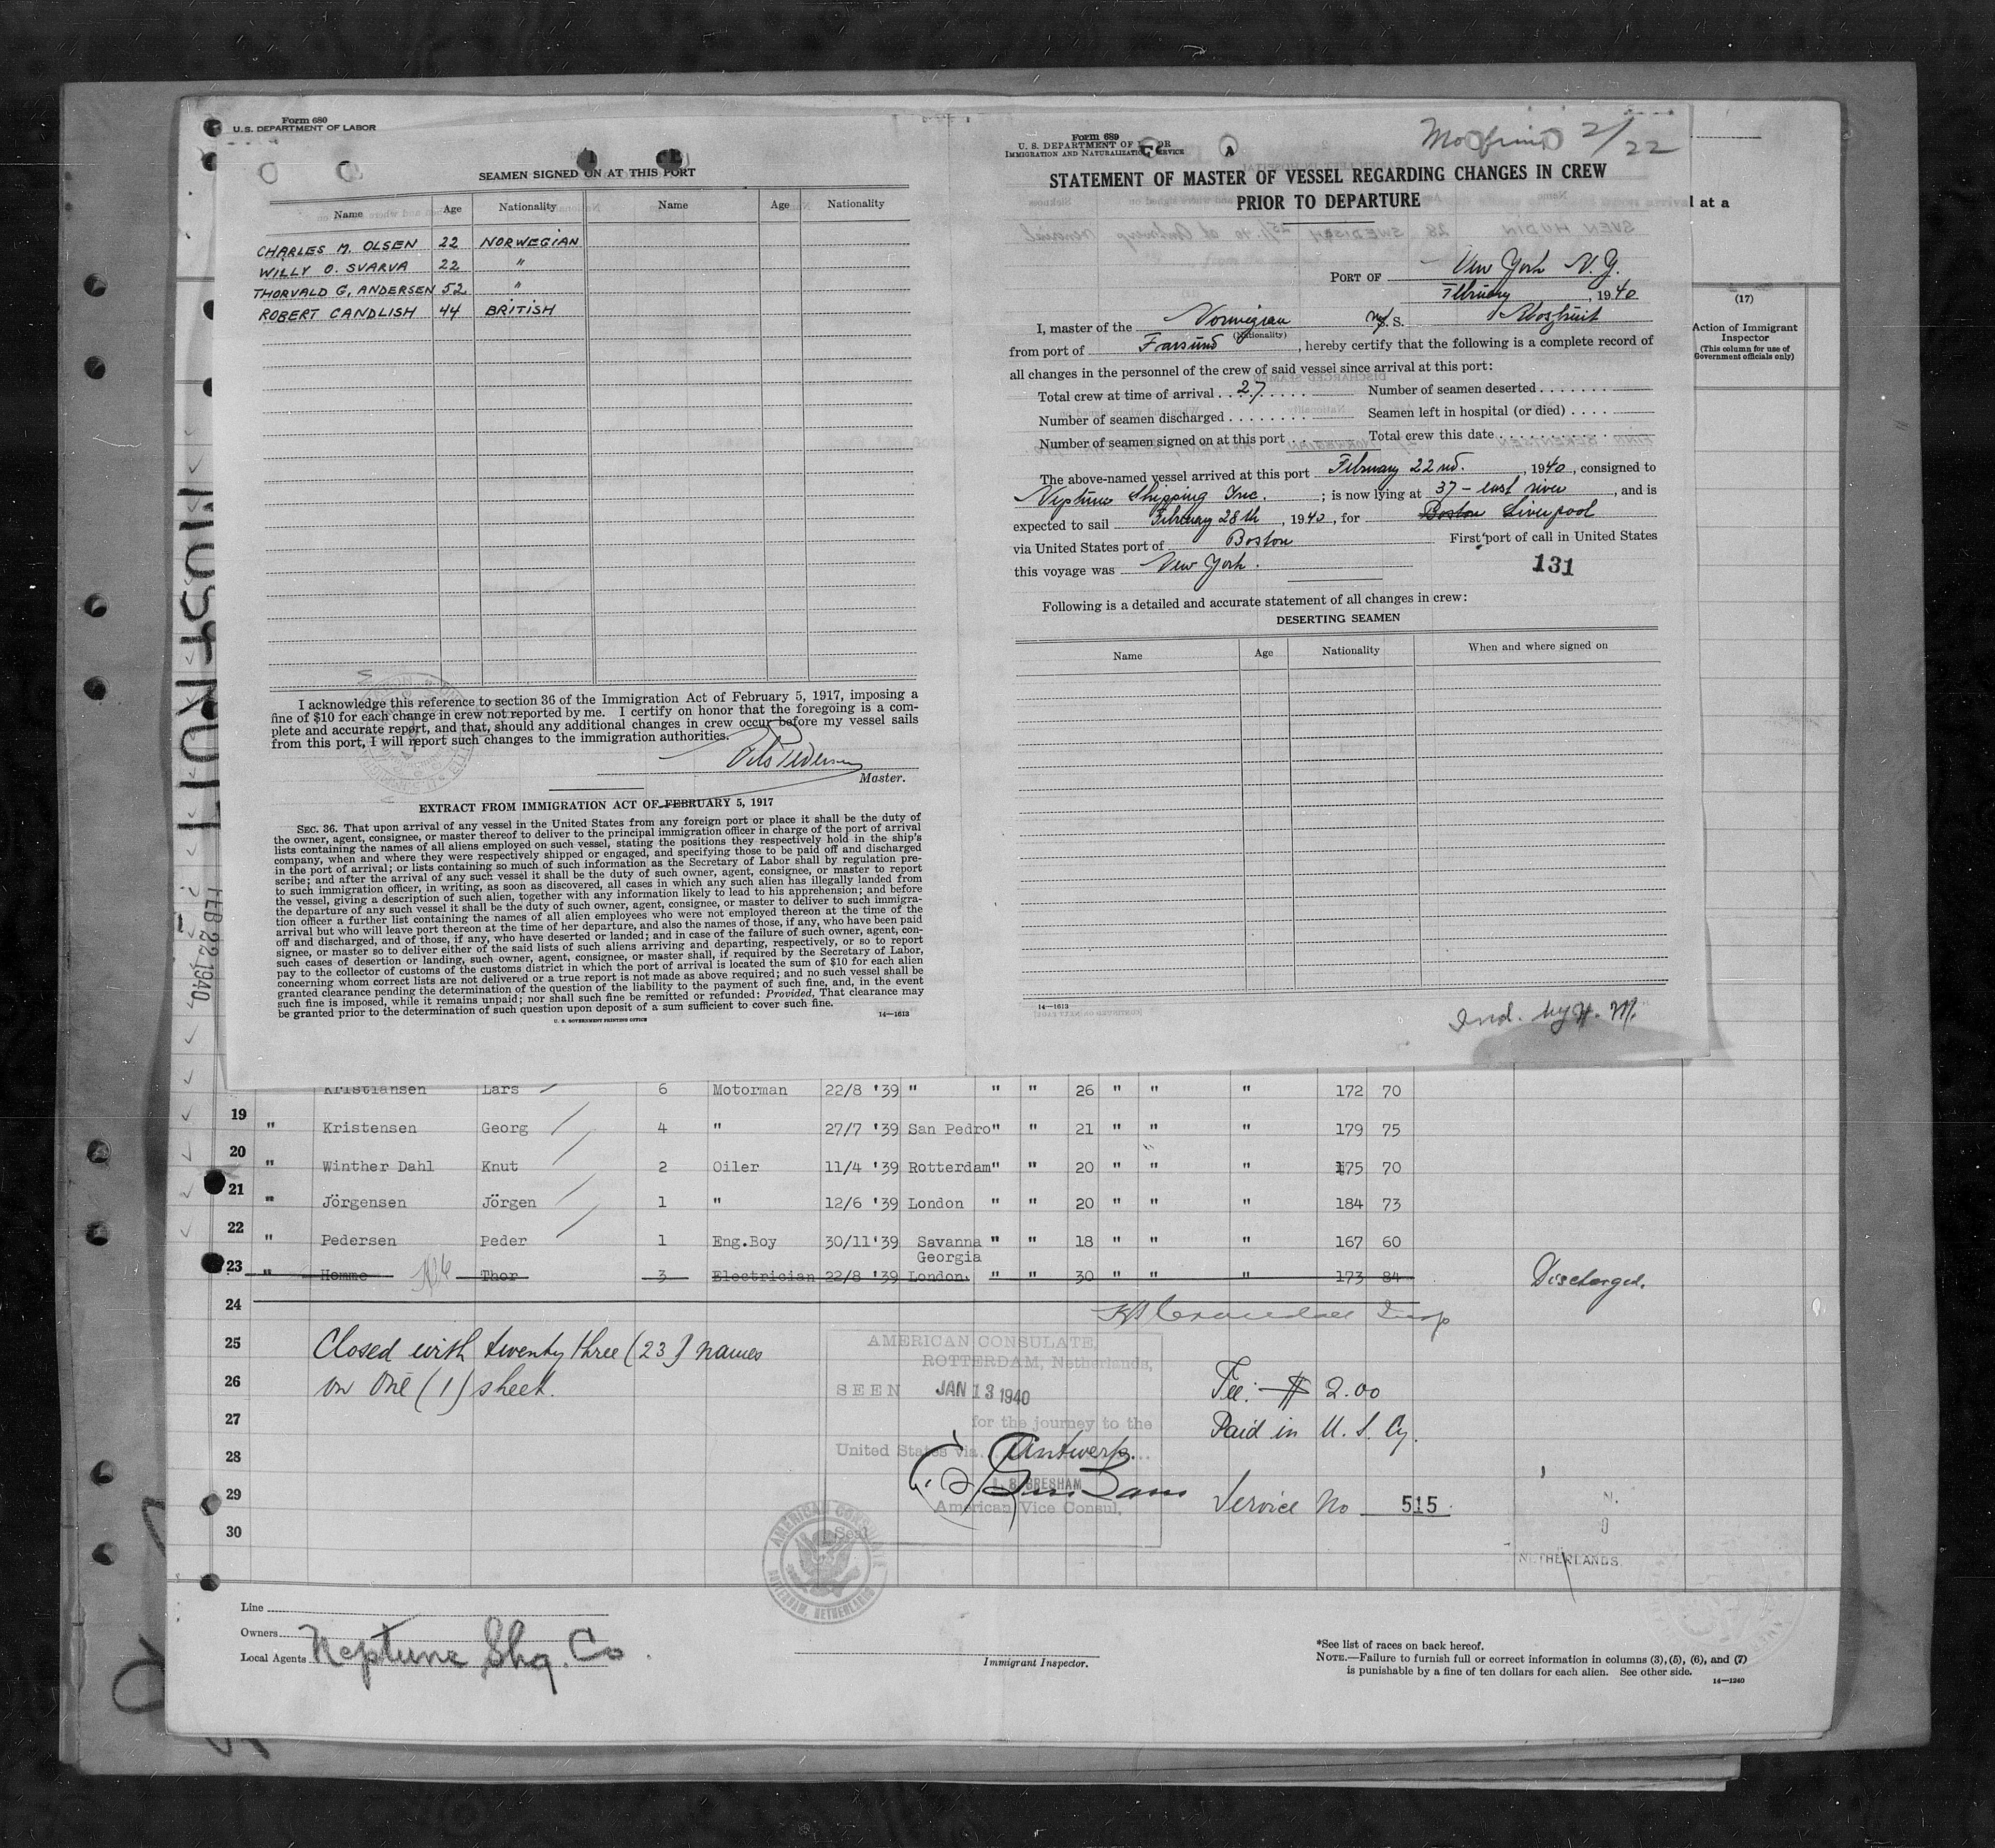 Form 680
U.S. DEPARTMENT OF LABOR
SEAMEN SIGNED ON AT THIS PORT
Name Age Nationality Name Age Nationality
CHARLES M. OLSEN 22 NORWEGIAN
WILLY O. SVARVA 22 "
THORVALD G. ANDERSEN 52 "
ROBERT CANDLISH 44 BRITISH
I acknowledge this reference to section 36 of the Immigration Act of February 5, 1917, imposing a
fine of $10 for each change in crew not reported by me. I certify on honor that the foregoing is a com-
plete and accurate report, and that, should any additional changes in crew occur before my vessel sails
from this port, I will report such changes to the immigration authorities.
Nils Pedersen
Master.
EXTRACT FROM IMMIGRATION ACT OF FEBRUARY 5, 1917
SEC. 36. That upon arrival of any vessel in the United States from any foreign port or place it shall be the duty of
the owner, agent, consignee, or master thereof to deliver to the principal immigration officer in charge of the port of arrival
lists containing the names of all aliens employed on such vessel, stating the positions they respectively hold in the ship's
company, when and where they were respectively shipped or engaged, and specifying those to be paid off and discharged
in the port of arrival; or lists containing so much of such information as the Secretary of Labor shall by regulation pre-
scribe; and after the arrival of any such vessel it shall be the duty of such owner, agent, consignee, or master to report
to such immigration officer, in writing, as soon as discovered, all cases in which any such alien has illegally landed from
the vessel, giving a description of such alien, together with any information likely to lead to his apprehension; and before
the departure of any such vessel it shall be the duty of such owner, agent, consignee, or master to deliver to such immigra-
tion officer a further list containing the names of all alien employees who were not employed thereon at the time of the
arrival but who will leave port thereon at the time of her departure, and also the names of those, if any, who have been paid
off and discharged, and of those, if any, who have deserted or landed; and in case of the failure of such owner, agent, con-
signee, or master so to deliver either of the said lists of such aliens arriving and departing, respectively, or so to report
such cases of desertion or landing, such owner, agent, consignee, or master shall, if required by the Secretary of Labor,
pay to the collector of customs of the customs district in which the port of arrival is located the sum of $10 for each alien
concerning whom correct lists are not delivered or a true report is not made as above required; and no such vessel shall be
granted clearance pending the determination of the question of the liability to the payment of such fine, and, in the event
such fine is imposed, while it remains unpaid; nor shall such fine be remitted or refunded: Provided, That clearance may
be granted prior to the determination of such question upon deposit of a sum sufficient to cover such fine.
U. S. GOVERNMENT PRINTING OFFICE 14—1613
Form 689
U. S. DEPARTMENT OF
IMMIGRATION AND NATURALIZATION SERVICE
2/22
STATEMENT OF MASTER OF VESSEL REGARDING CHANGES IN CREW
PRIOR TO DEPARTURE
PORT OF New York N.Y.
February, 1940
I, master of the Norwegian M/S. S. Mosfruit
(Nationality)
from port of Farsund, hereby certify that the following is a complete record of
all changes in the personnel of the crew of said vessel since arrival at this port:
Total crew at time of arrival 27 Number of seamen deserted
Number of seamen discharged Seamen left in hospital (or died)
Number of seamen signed on at this port Total crew this date
The above-named vessel arrived at this port February 22nd., 1940, consigned to
Neptune Shipping Inc.; is now lying at 37 - east river, and is
expected to sail February 28th, 1940, for Boston Liverpool
via United States port of Boston First port of call in United States
this voyage was New York.
131
Following is a detailed and accurate statement of all changes in crew:
DESERTING SEAMEN
Name Age Nationality When and where signed on
14—1613
Ind. by H. M.
l at a
(17)
Action of Immigrant
Inspector
(This column for use of
Government officials only)
MOSFRUIT
FEB 22 1940
Kristiansen Lars 6 Motorman 22/8 '39 " " " 26 " " " 172 70
19 " Kristensen Georg 4 " 27/7 '39 San Pedro " " 21 " " " 179 75
20 " Winther Dahl Knut 2 Oiler 11/4 '39 Rotterdam " " 20 " " " 175 70
21 " Jörgensen Jörgen 1 " 12/6 '39 London " " 20 " " " 184 73
22 " Pedersen Peder 1 Eng.Boy 30/11'39 Savanna " " 18 " " " 167 60
Georgia
23 " Homme Thor 3 Electrician 22/8 '39 London. " " 30 " " " 173 84 Discharged.
24
25 Closed with twenty three (23) names
26 on one (1) sheet.
27
28
29
30
AMERICAN CONSULATE,
ROTTERDAM, Netherlands,
SEEN JAN 13 1940
for the journey to the
United States via Antwerp.
American Vice Consul.
Seal
AMERICAN CONSULATE
ROTTERDAM, NETHERLANDS
Fee: $ 2.00
Paid in U. S. Cy.
Service No 515
NETHERLANDS.
Line
Owners
Local Agents Neptune Shg. Co.
Immigrant Inspector.
*See list of races on back hereof.
NOTE.—Failure to furnish full or correct information in columns (3), (5), (6), and (7)
is punishable by a fine of ten dollars for each alien. See other side.
14—1240